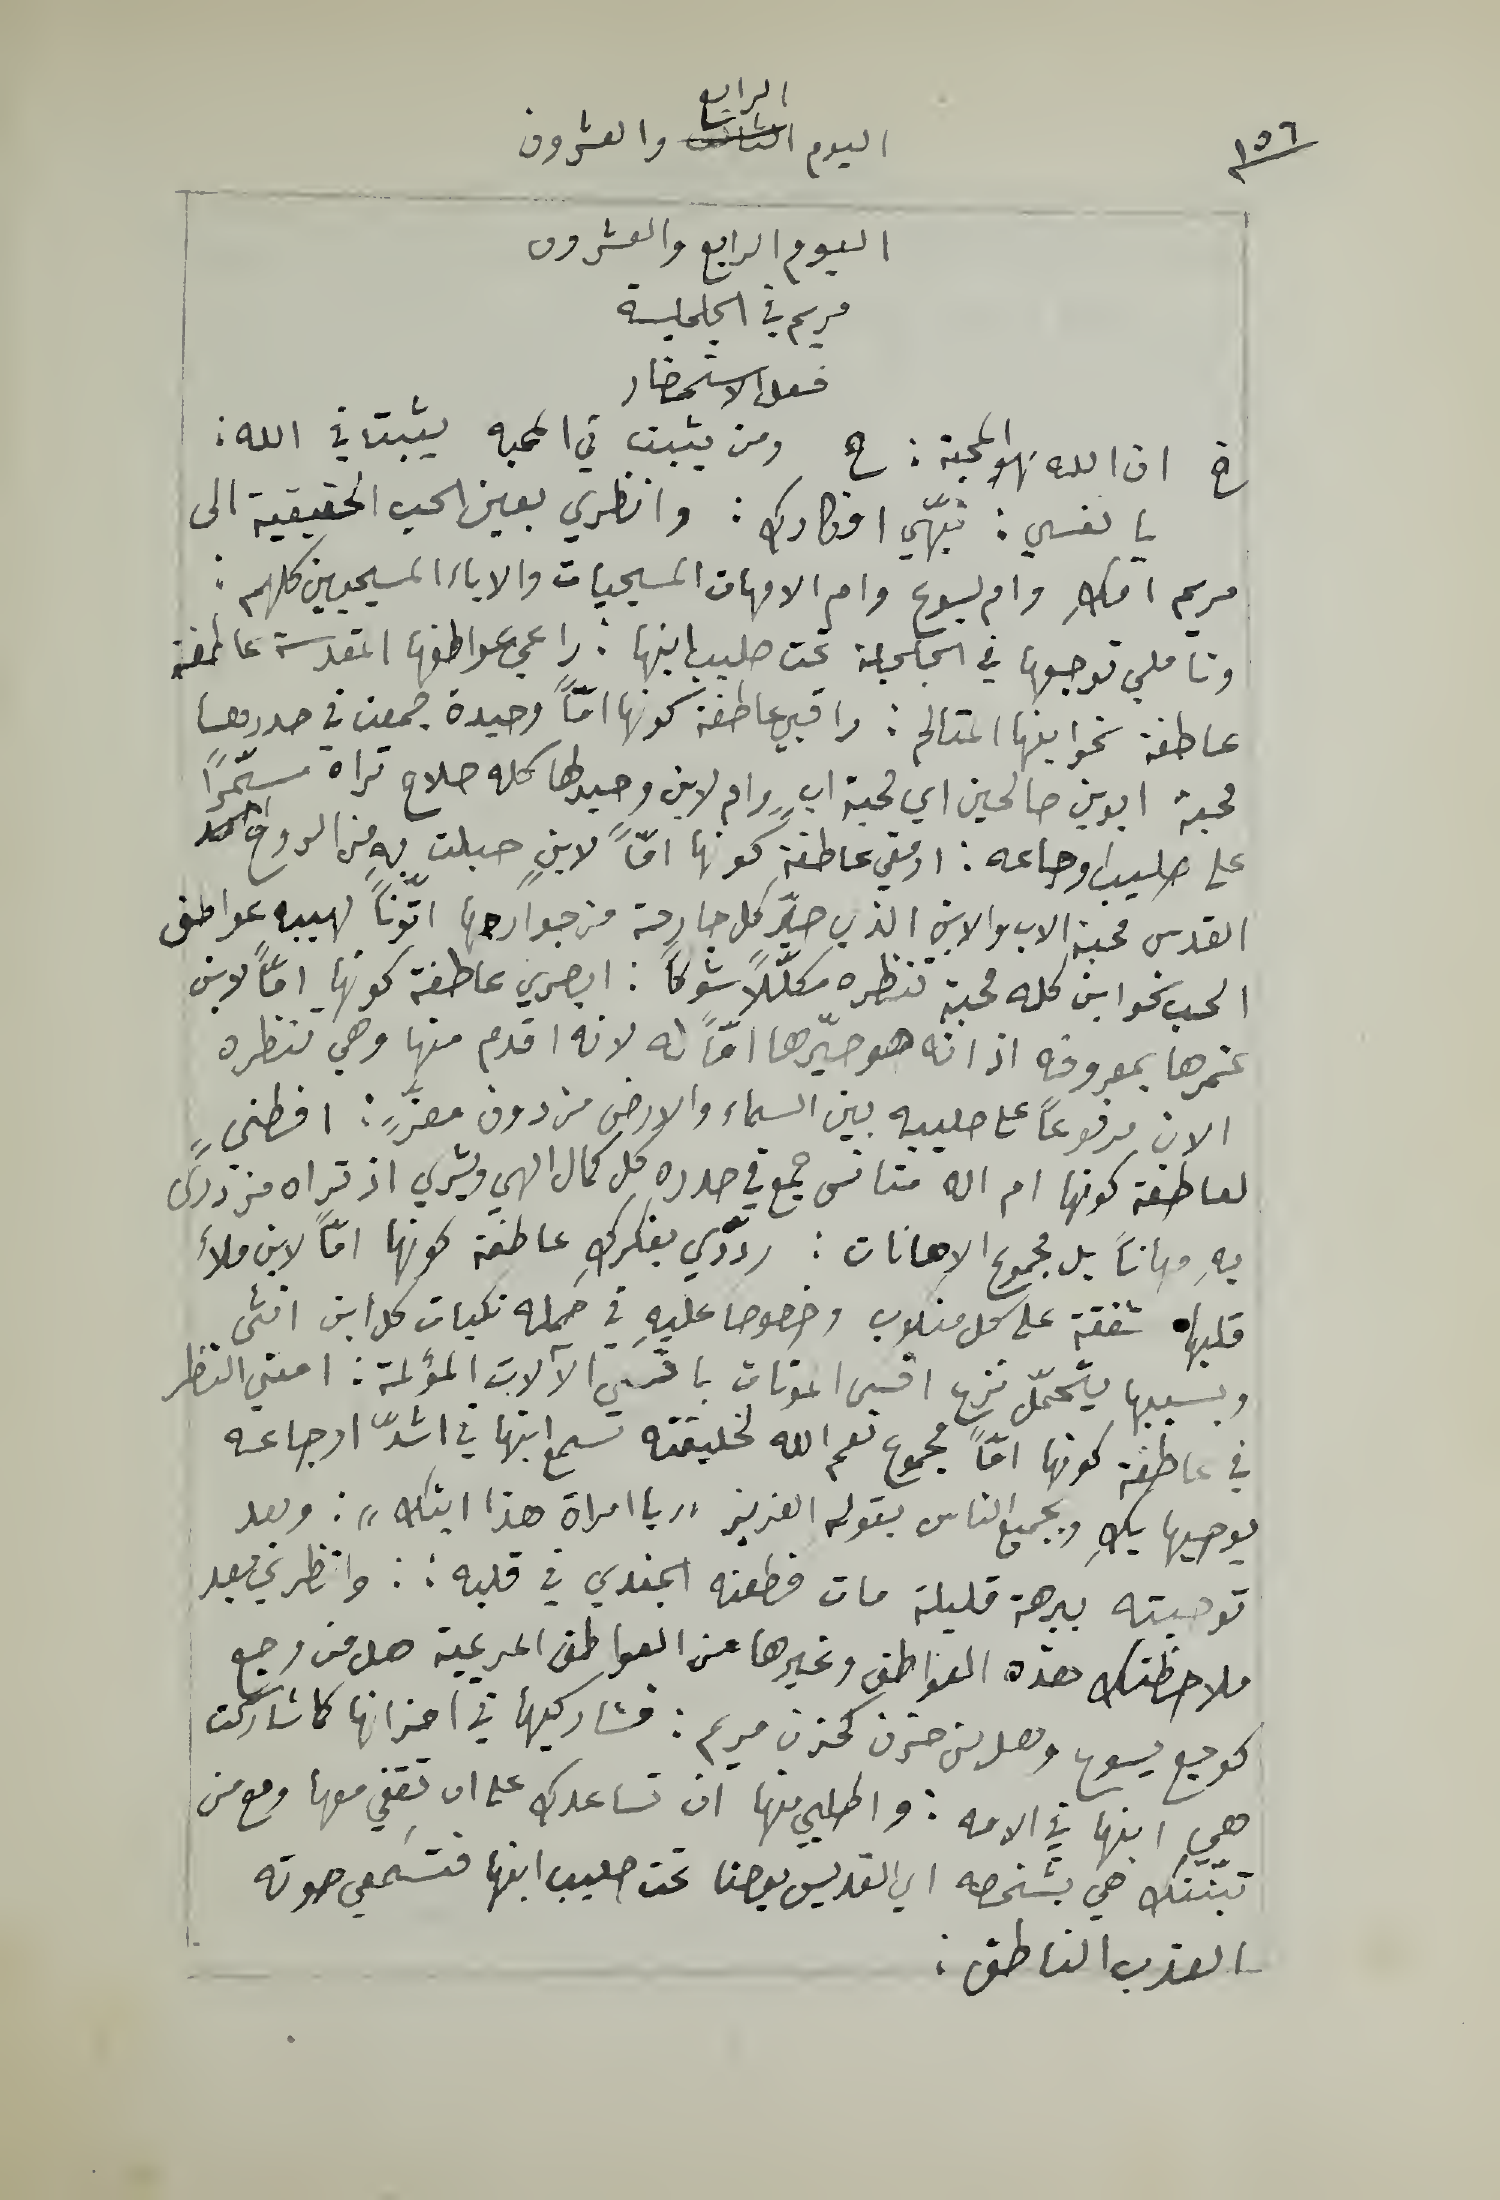 ١٥٦
الرابع
اليوم الثالث والعشرون
اليوم الرابع والعشرون
مريم في الجلجلة
فعل الاستحضار
خ ان الله هو المحبة : ج ومن يثبت في المحبه يثبت في الله :
يا نفسي : نبّهي افكارك : وانظري بعين الحب الحقيقية الى
مريم امكِ وام يسوع وام الامهات المسيحيات والاباء المسيحيين كلهم :
وتأملي توجعها في الجلجلة تحت صليب ابنها : راعي عواطفها المقدسة عاطفة
عاطفة نحو ابنها المتالم : راقبي عاطفة كونها امّاً وحيدة جمعت في صدرها
محبة ابوين صالحين اي محبة ابٍ وام لابن وحيدها كله صلاح تراه مسمّرًا
على صليب اوجاعه : ارمقي عاطفة كونها امّاً لابنٍ حبلت بهِ من الروح
القدس محبة الاب والابن الذي صيّر كل جارحة من جوارحها اتّوناً لهيبه عواطف
الحب نحو ابن كله محبة تنظره مكلّلاً شوكاً : ابصري عاطفة كونها امّاً لابن
غمرها بمعروفه اذ انه هو صيّرها امّاً له لانه اقدم منها وهي تنظره
الان مرفوعاً على صليبه بين السماء والارض من دون معزٍّ : افطني
لعاطفة كونها ام اله متانس جمع في صدره كل كمال الهي وبشري اذ تراه مزدرًى
بهِ مهاناً بل مجموع الاهانات : ردّدي بفكركِ عاطفة كونها امّاً لابن ملأ
قلبها شفقة على كل منكوب وخصوصا عليهِ في حمله نكبات كل ابن انثى
وبسببها يتحمّل نزع اقسى الموتات باقسى الآلات المؤلمة : امعني النظر
في عاطفة كونها امّاً مجموع نعم الله لخليقته تسمع ابنها في اشدّ اوجاعه
يوصيها بكِ وبجميع الناس بقوله العزيز ,, يا امراة هذا ابنك ,, : وبعد
توصيته ببرهة قليلة مات فطعنه الجندي في قلبه : : وانظري بعد
ملاحظتك هذه العواطف وغيرها من العواطف المريمية هل من وجع
كوجع يسوع وهل من حزن كحزن مريم : فشاركيها في احزانها كما شاركت
هي ابنها في الامه : واطلبي منها ان تساعدك على ان تقفي معها ومع من
تبنّتك هي بشخصه اي القديس يوحنا تحت صليب ابنها فتسمعي صوته
العذب الناطق :